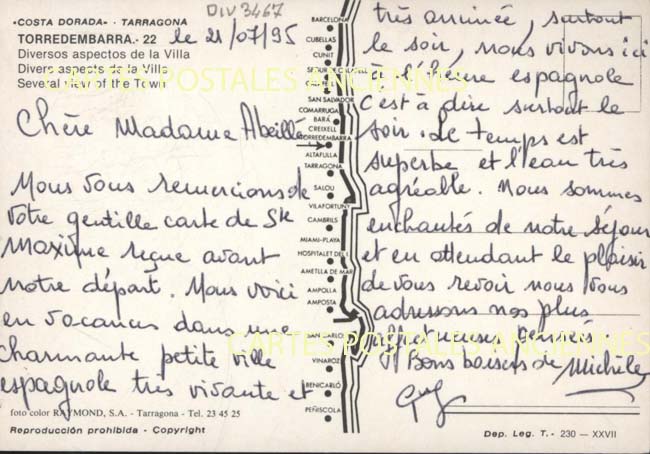 DIV 3467
«COSTA DORADA» - TARRAGONA
TORREDEMBARRA.- 22
le 21/07/95
Diversos aspectos de la Villa
Divers aspects de la Ville
Several view of the Town
Chère Madame Abeille
Nous vous remercions de
votre gentille carte de Ste
Maxime reçue avant
notre départ. Nous voici
en vacances dans une
charmante petite ville
espagnole très vivante et
foto color RAYMOND, S.A. - Tarragona - Tel. 23 45 25
Reproducción prohibida - Copyright
BARCELONA
CUBELLAS
CUNIT
SAN SALVADOR
COMARRUGA
BARÁ
CREIXELL
TORREDEMBARRA
ALTAFULLA
TARRAGONA
SALOU
VILAFORTUNY
CAMBRILS
MIAMI-PLAYA
HOSPITALET DEL I.
AMETLLA DE MAR
AMPOLLA
AMPOSTA
SAN CARLOS
VINAROZ
BENICARLÓ
PEÑISCOLA
très animée, surtout
le soir, nous vivons ici
à l'heure espagnole
c'est à dire surtout le
soir. Le temps est
superbe et l'eau très
agréable. Nous sommes
enchantés de notre séjour
et en attendant le plaisir
de vous revoir nous vous
adressons nos plus
affectueuses pensées
Bons baisers de Michèle
Guy
Dep. Leg. T. - 230 — XXVII
CARTES POSTALES ANCIENNES
CARTES POSTALES ANCIENNES